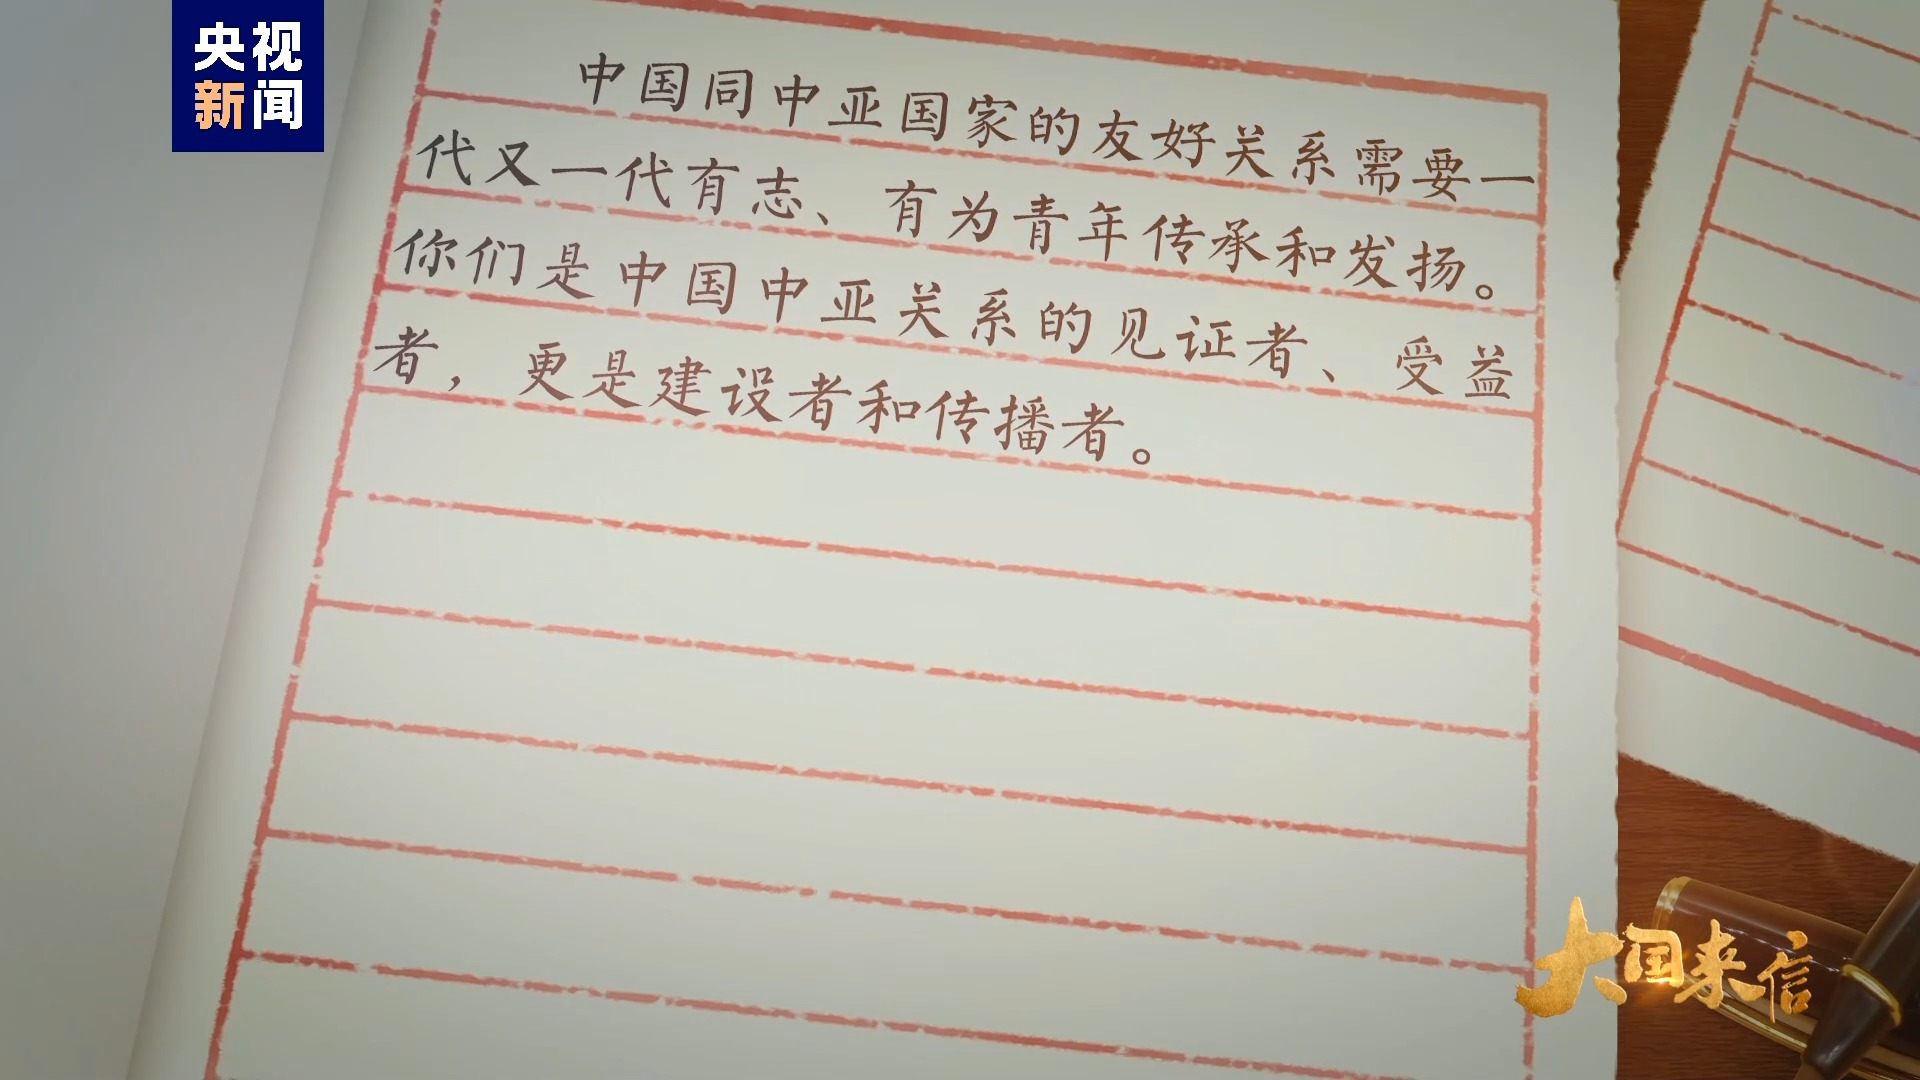 央视
新闻
中国同中亚国家的友好关系需要一
代又一代有志、有为青年传承和发扬。
你们是中国中亚关系的见证者、受益
者，更是建设者和传播者。
大国来信